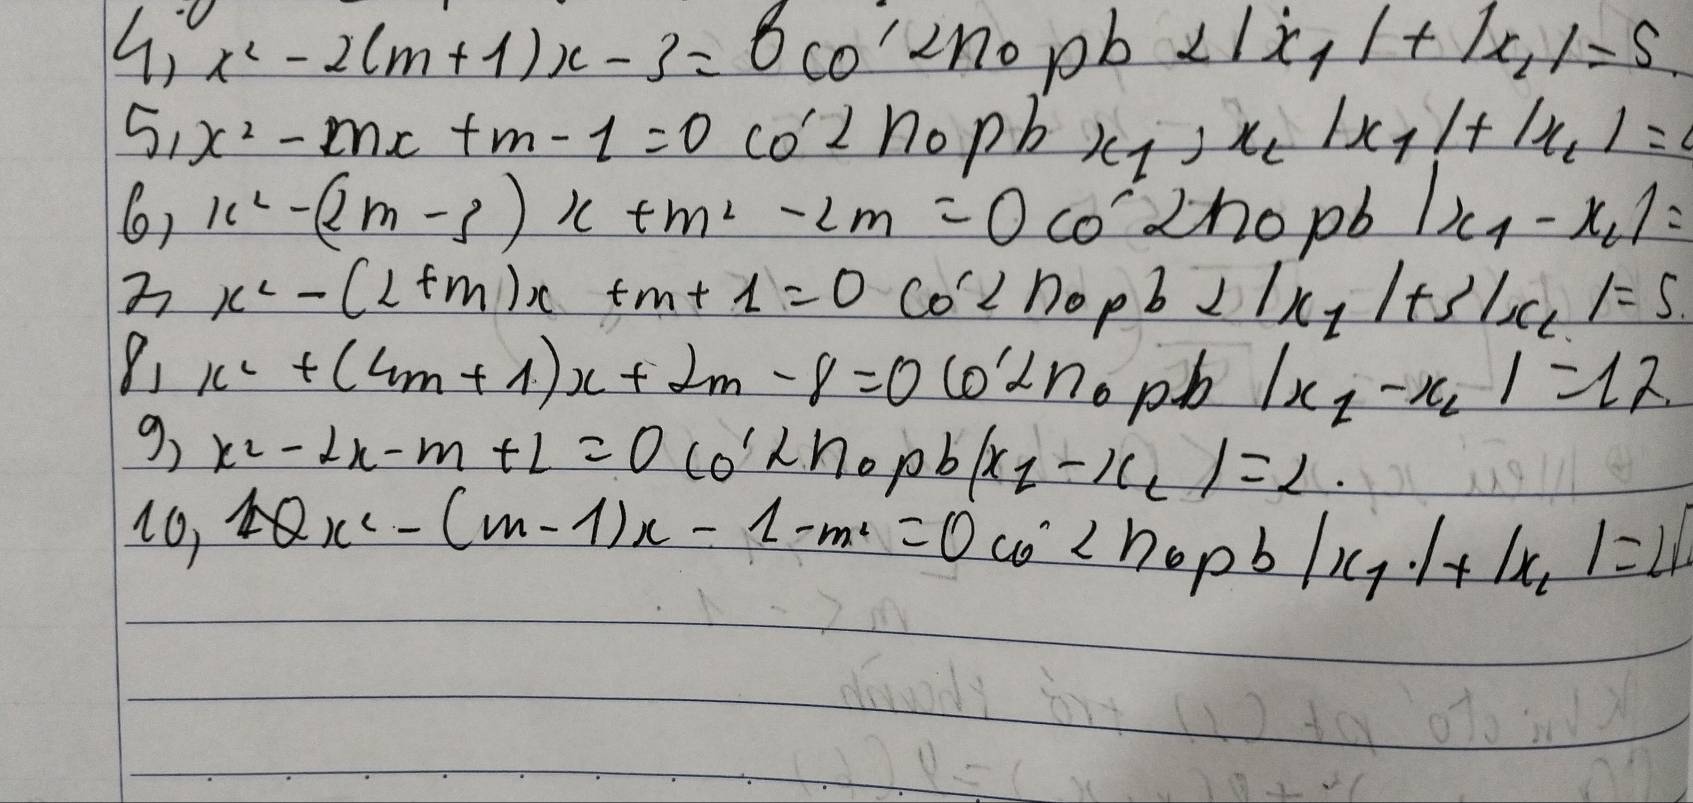 4, x² - 2(m+1)x - 3 = 0 có 2 no pb 2|x₁| + |x₂| = 5.
5, x² - mx + m - 1 = 0 có 2 no pb x₁; x₂ |x₁| + |x₂| =
6, x² - (2m - 3)x + m² - 2m = 0 có 2 no pb |x₁ - x₂| =
7, x² - (2+m)x + m + 1 = 0 có 2 no pb 2|x₁| + 3|x₂| = 5.
8, x² + (4m+1)x + 2m - 8 = 0 có 2 no pb |x₁ - x₂| = 17.
9, x² - 2x - m + 2 = 0 có 2 no pb |x₁ - x₂| = 2.
10, x² - (m-1)x - 1 - m² = 0 có 2 no pb |x₁| + |x₂| = 2√